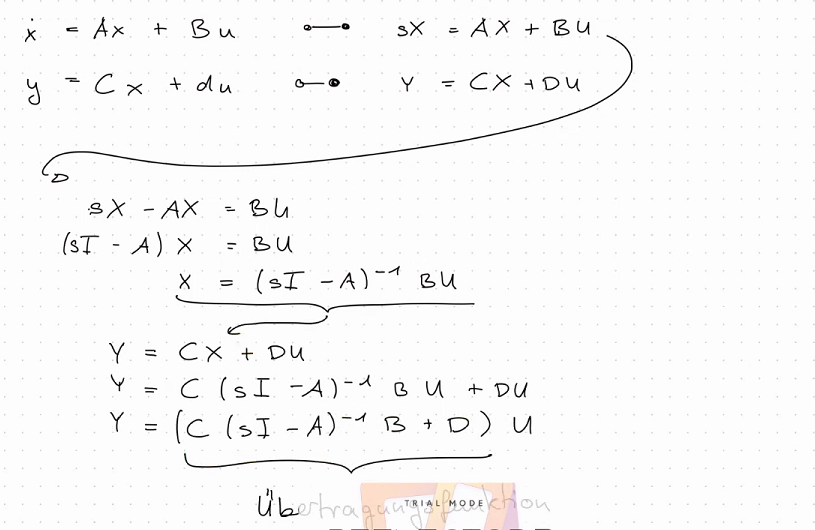 ẋ = Ax + Bu ○—● sX = AX + BU
y = Cx + du ○—● Y = CX + DU
sX - AX = BU
(sI - A) X = BU
X = (sI - A)⁻¹ BU
Y = CX + DU
Y = C (sI - A)⁻¹ B U + DU
Y = (C (sI - A)⁻¹ B + D) U
Übertragungsfunktion
TRIAL MODE